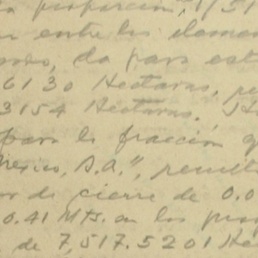 proporción, 1/51
entre los
da para est
6130 Hectáreas,
3154 Hectáreas.
para la fracción q
México, S.A.", result
de cierre de 0.0
0.41 Mts. en los
de 7,517.5201 Hé